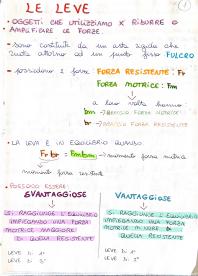 LE LEVE
• OGGETTI CHE UTILIZZIAMO X RIDURRE O
AMPLIFICARE LE FORZE
- sono costituite da un asta rigida che
ruota attorno ad un punto fisso FULCRO
- possiedono 2 forze FORZA RESISTENTE: Fr
FORZA MOTRICE: Fm
a loro volta hanno:
bm → BRACCIO FORZA MOTRICE
br → BRACCIO FORZA RESISTENTE
- LA LEVA È IN EQUILIBRIO QUANDO
Fr·br = Fm·bm → momento forza motrice
momento forza resistente
• POSSONO ESSERE:
SVANTAGGIOSE
SI RAGGIUNGE L'EQUILIBRIO
IMPIEGANDO UNA FORZA
MOTRICE MAGGIORE
DI QUELLA RESISTENTE
LEVE DI 1°
LEVE DI 3°
VANTAGGIOSE
SI RAGGIUNGE L'EQUILIBRIO
IMPIEGANDO UNA FORZA
MOTRICE MINORE DI
QUELLA RESISTENTE
LEVE DI 1°
LEVE DI 2°